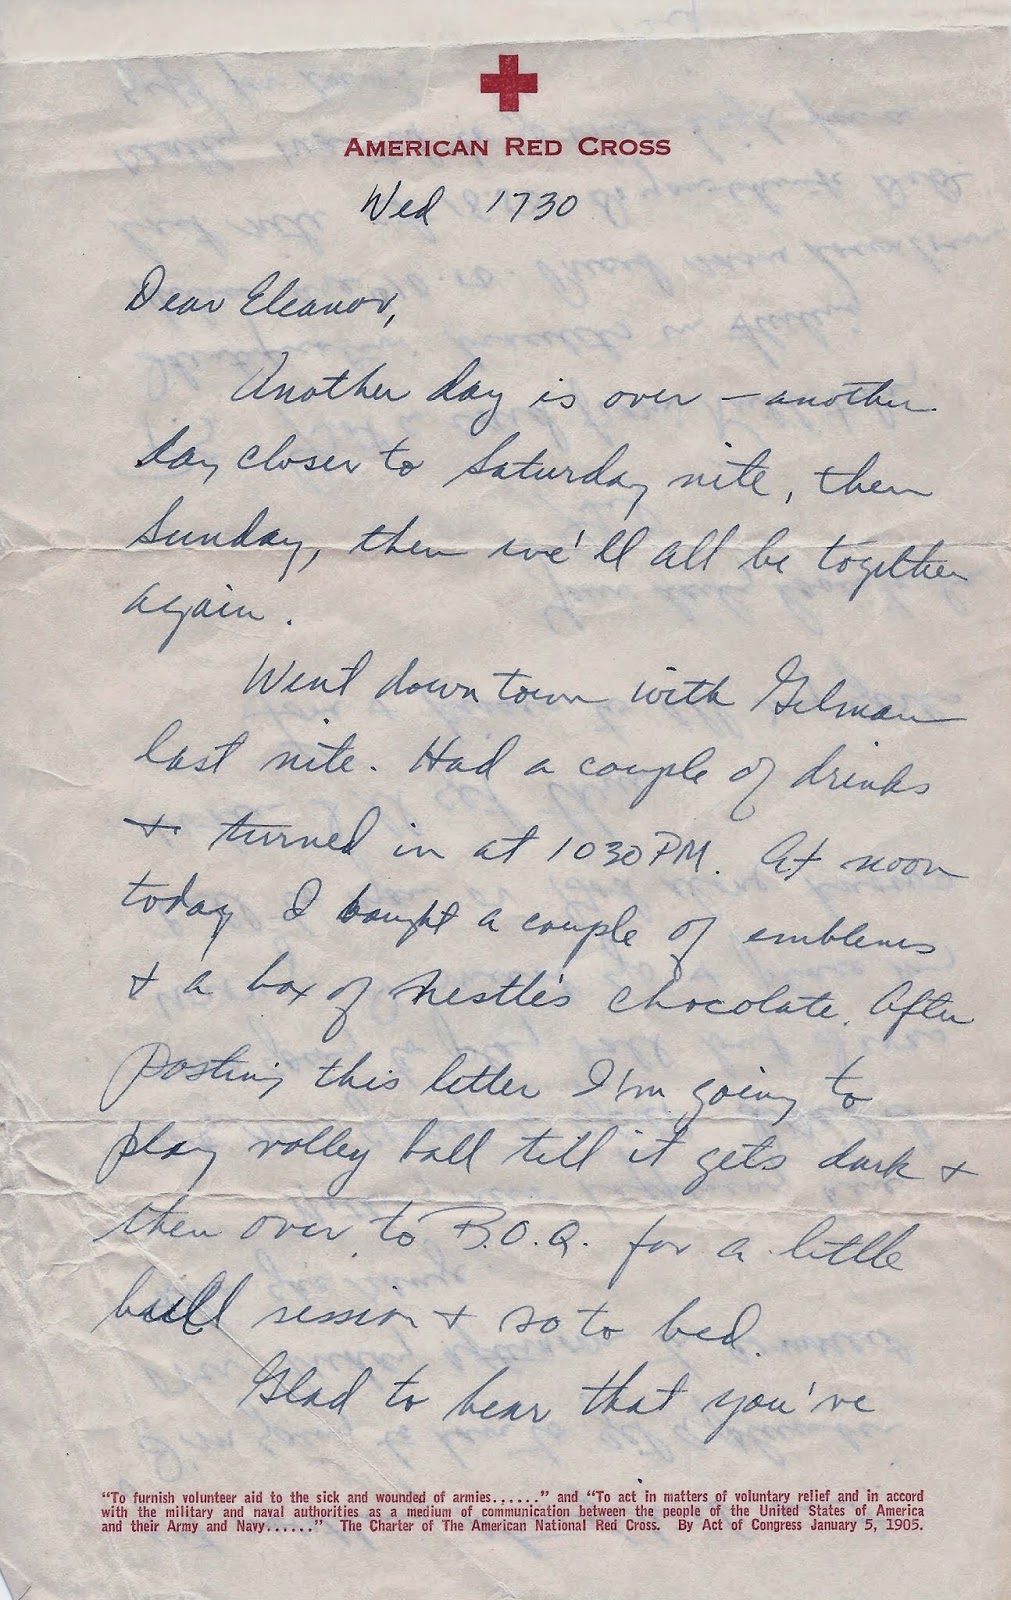 AMERICAN RED CROSS
Wed 1730
Dear Eleanor,
Another day is over – another
day closer to Saturday nite, then
Sunday, then we'll all be together
again.
Went down town with Gilman
last nite. Had a couple of drinks
& turned in at 1030 PM. At noon
today I bought a couple of emblems
& a box of Nestle's chocolate. After
posting this letter I'm going to
play volley ball till it gets dark &
then over to B.O.Q. for a little
bull session & so to bed.
Glad to hear that you've
"To furnish volunteer aid to the sick and wounded of armies......" and "To act in matters of voluntary relief and in accord
with the military and naval authorities as a medium of communication between the people of the United States of America
and their Army and Navy......" The Charter of The American National Red Cross. By Act of Congress January 5, 1905.